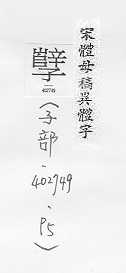 宋體母稿異體字
402749
(子部-402749-P5)